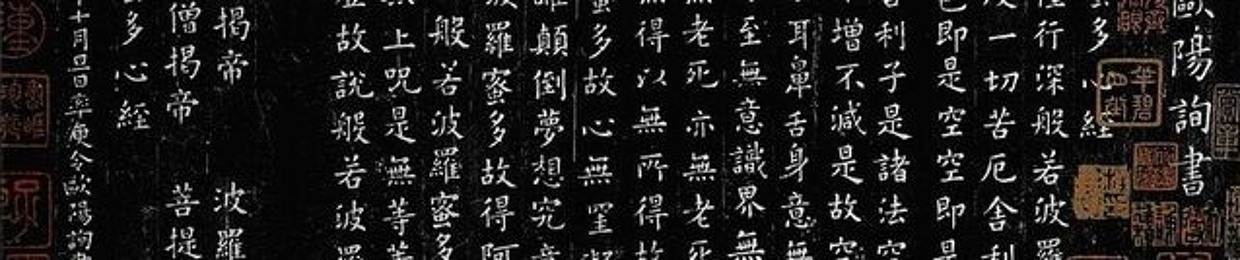 歐陽詢書
多心經
行深般若波羅
一切苦厄舍利
色即是空空即是
利子是諸法空
增不減是故空
耳鼻舌身意無
至無意識界無
老死亦無老死
無得以無所得故
蜜多故心無罣礙
顛倒夢想究竟
羅蜜多故得阿
般若波羅蜜多
上咒是無等等
故說般若波羅
揭帝 波羅
僧揭帝 菩提
多心經
十月旦日率更令歐陽詢書